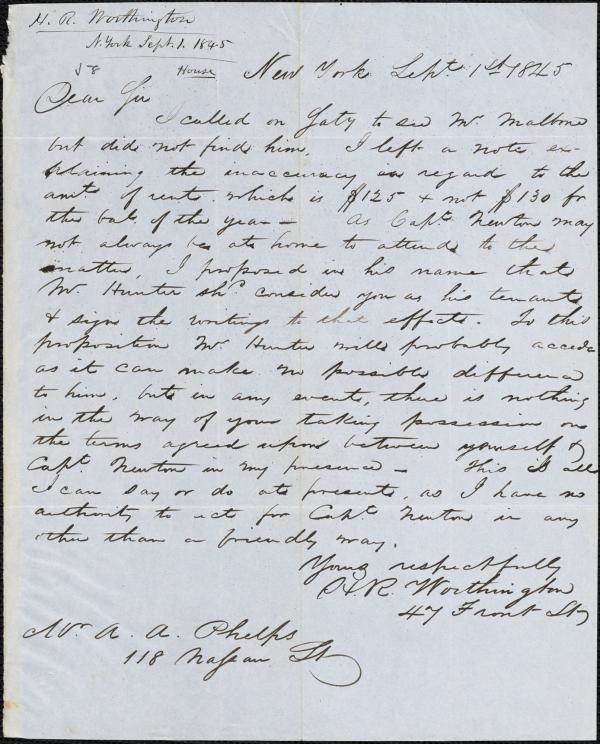 H. R. Worthington
N. York Sept. 1. 1845
House
New York Sept. 1st 1845
Dear Sir
I called on Saty to see Mr Malbone
but did not find him. I left a note ex-
plaining the inaccuracy in regard to the
amt. of rent. which is $125 & not $130 for
the bal. of the year — As Capt. Newton may
not always be at home to attend to the
matter, I proposed in his name that
Mr. Hunter shd. consider you as his tenant
& sign the writings to that effect. To this
proposition Mr Hunter will probably accede
as it can make no possible difference
to him, but in any event, there is nothing
in the way of your taking possession on
the terms agreed upon between yourself &
Capt. Newton in my presence — This is all
I can say or do at present, as I have no
authority to act for Capt. Newton in any
other than a friendly way.
Yours respectfully
H. R. Worthington
47 Front St
Mr. A. A. Phelps
118 Nassau St